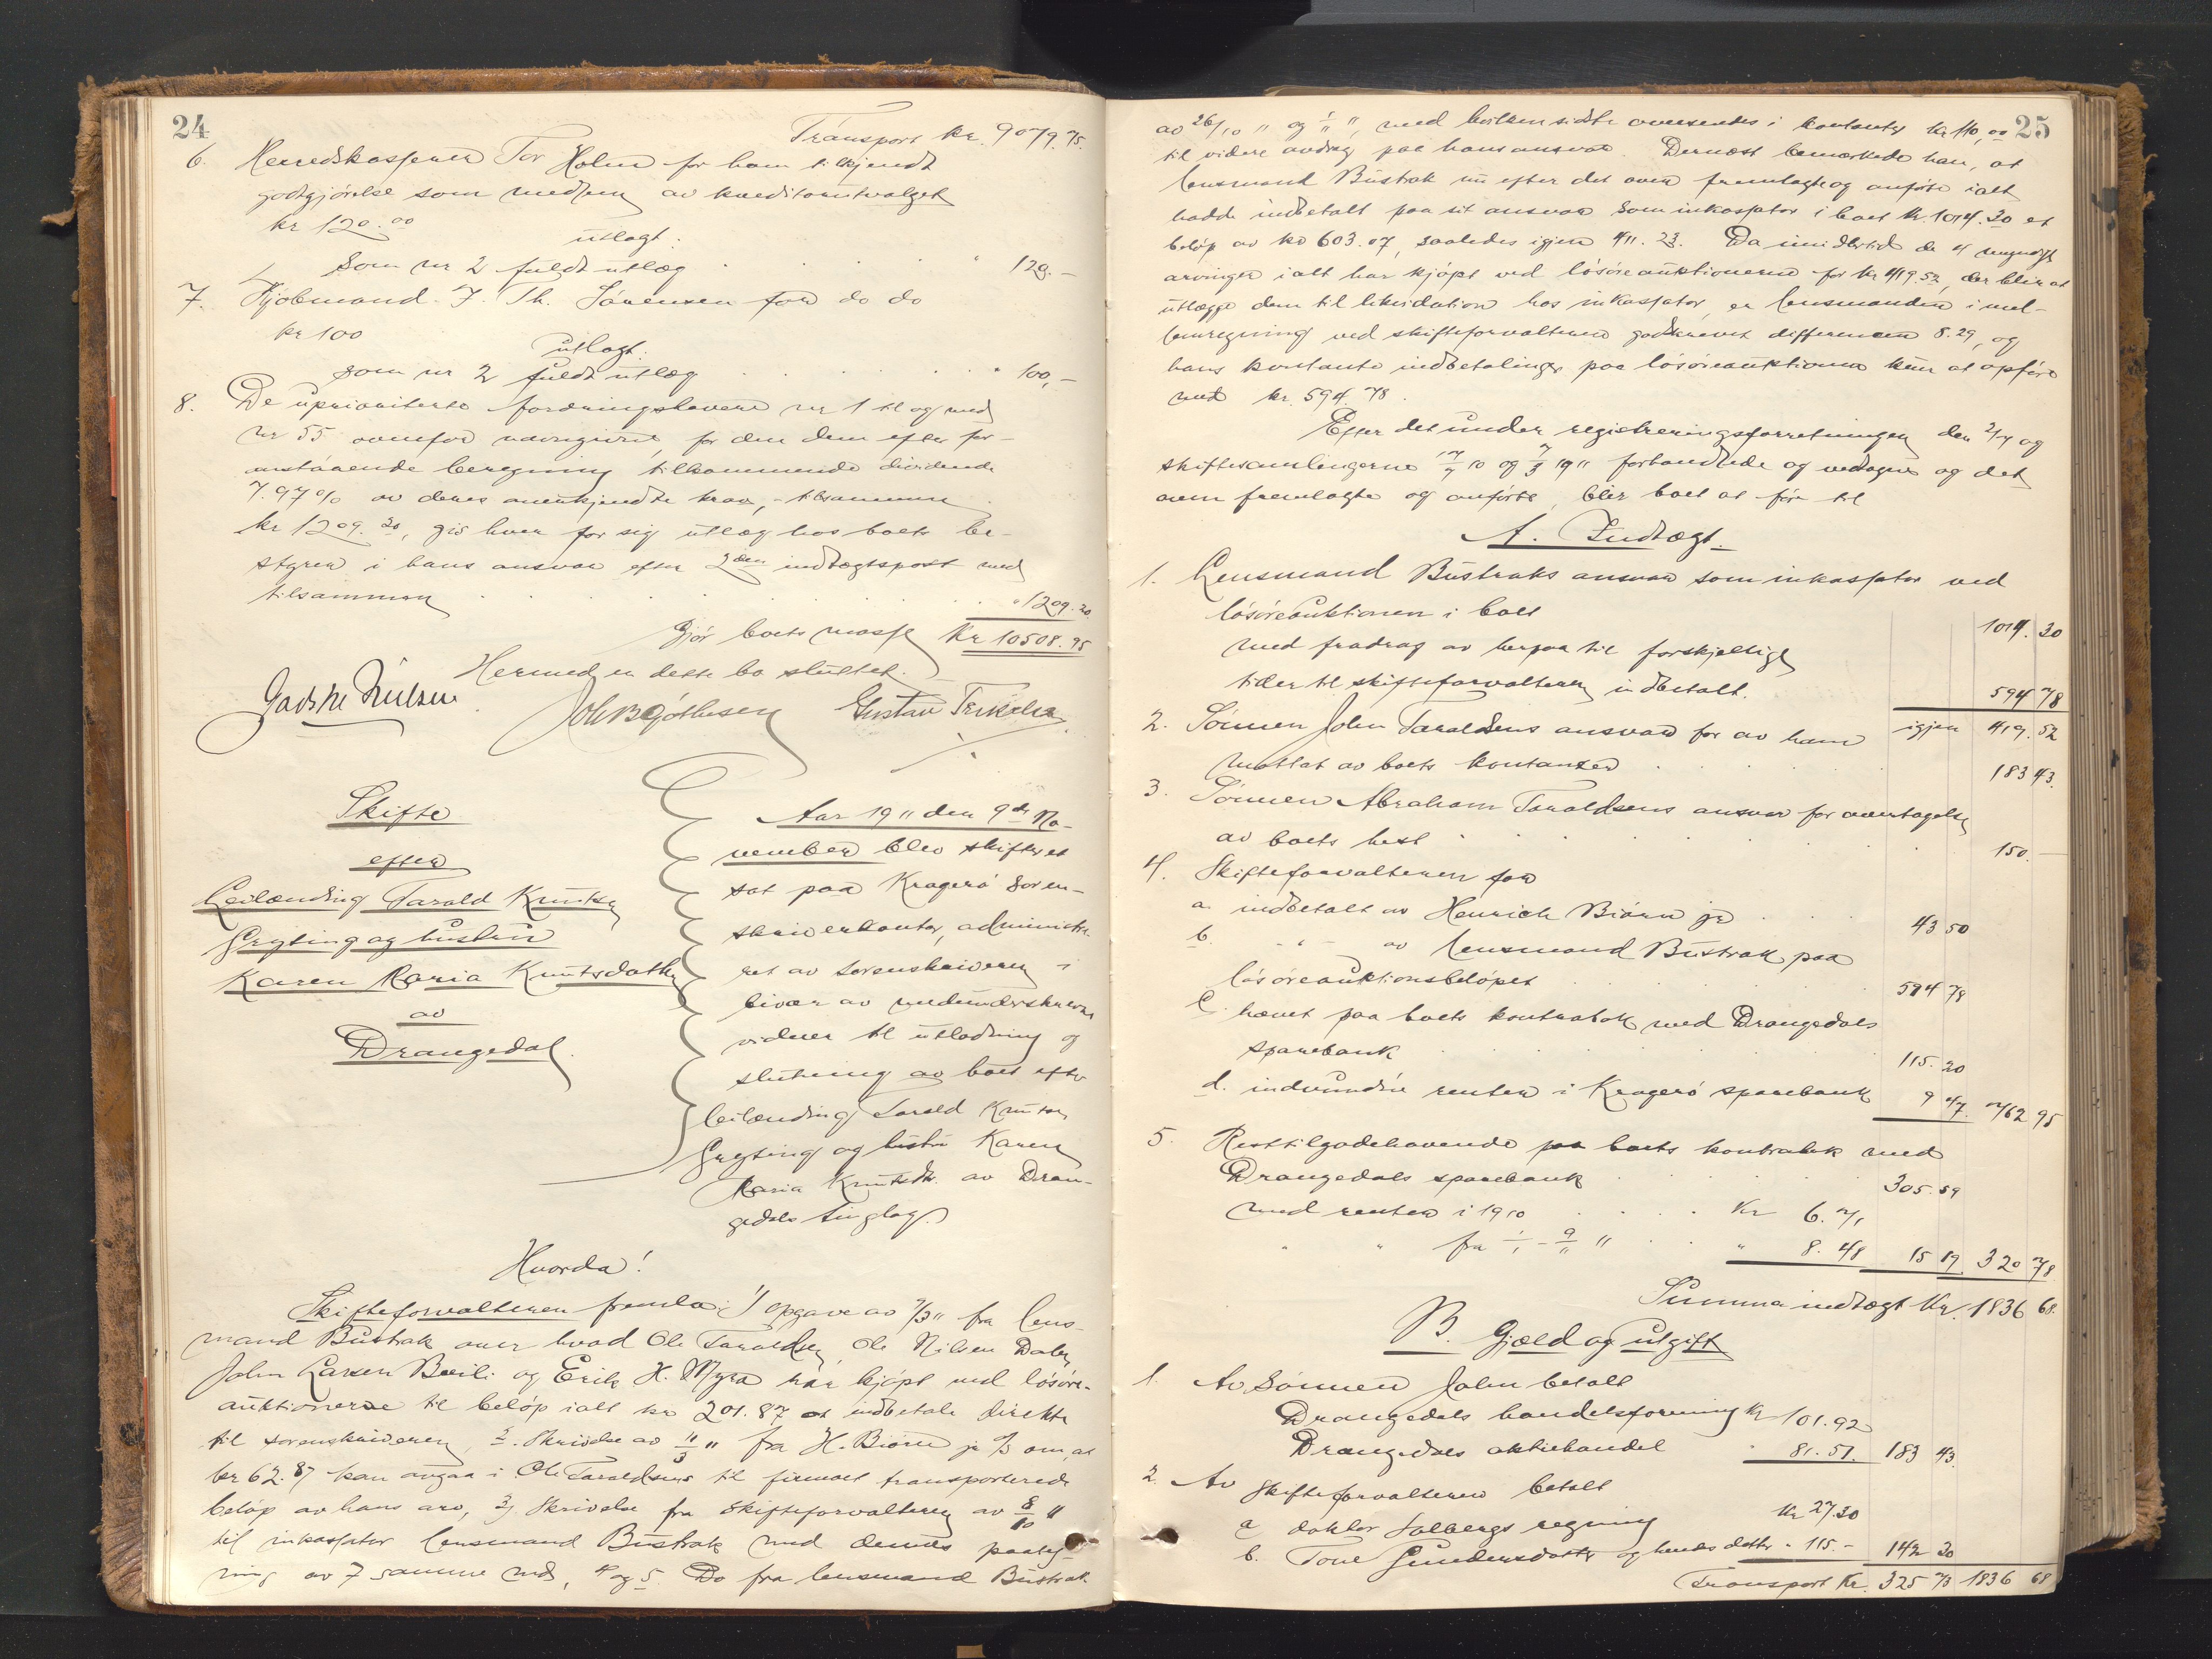 24
Transport kr. 9079.75.
6. Herredskasserer Tor Holm for ham tilkjendt
godtgjörelse som medlem av kreditorutvalget
kr 120.00
utlagt:
som nr 2 fuldt utlæg " 120.-
7. Kjöbmand J. Th. Sörensen for do do
kr 100
utlagt:
som nr 2 fuldt utlæg " 100,-
8. De uprioriterte fordringshavere nr 1 til og med
nr 55 ovenfor navngivne, for den dem efter for-
anstaaende beregning tilkommende dividende
7.97 % av deres anerkjendte krav, - tilsammen
kr 1209.20, gis hver for sig utlæg hos boets be-
styrer i hans ansvar efter 2den indtægtspost med
tilsammen " 1209.20
Gjör boets masse Kr 10508.95
Hermed er dette bo sluttet.
Skifte
efter
Leilænding Tarald Knutsen
Grysting og hustru
Karen Maria Knutsdatter
av
Drangedal.
Aar 1911 den 9de No-
vember blev skifteret
sat paa Kragerö soren-
skriverkontor, administre-
ret av sorenskriveren i
bivær av medunderskrevne
vidner til utlodning og
slutning av boet efter
leilænding Tarald Knutsen
Grysting og hustru Karen
Maria Knutsdtr. av Dran-
gedals tinglag.
Hvorda!
Skifteforvalteren fremla: 1) Opgave av 7/3 11 fra lens-
mand Bustrak over hvad Ole Taraldsen, Ole Nilsen Dalen,
John Larsen og Erik H. Myra har kjöpt ved lösöre-
auktionerne til beløp ialt kr 201.87 at indbetale direkte
til sorenskriveren, 2. Skrivelse av 11/3 11 fra H. Biörn jr om, at
kr 62.87 kan avgaa i Ole Taraldsens til firmaet transporterede
beløp av hans arv, 3) Skrivelse fra skifteforvalteren av 8/10 11
til inkassator lensmand Bustrak med dennes paateg-
ning av 7 samme mnd, 4 og 5. Do fra lensmand Bustrak
25
av 26/10 11 og 1/11 11, med hvilken sidste oversendes i kontanter kr 110,00
til videre avdrag paa hans ansvar. Dernæst bemærkede han, at
lensmand Bustrak nu efter det oven fremlagte og anförte ialt
hadde indbetalt paa sit ansvar som inkassator i boet kr. 1014.30 et
beløp av kr 603.07, saaledes igjen 411.23. Da imidlertid de 4 myndige
arvinger ialt har kjöpt ved lösöreauktionerne for kr 419.52, der blir at
utlægge dem til likvidation hos inkassator, er lensmanden i mel-
lemregning ved skifteforvalteren godskrevet differencen 8.29, og
hans kontante indbetalinger paa lösöreauktionen kun at opføre
med kr. 594.78.
Efter det under registreringsforretningen den 2/7 og
skiftesamlingerne 10 og 1911 forhandlede og vedtagne og det
oven fremlagte og anförte, blir boet at före til
A. Indtægt.
1. Lensmand Bustraks ansvar som inkassator ved
lösöreauktionen i boet 1014.30
med fradrag av herpaa til forskjellige
tider til skifteforvalteren indbetalt. 594 78
igjen 419.52
2. Sönnen John Taraldsens ansvar for av ham
mottat av boets kontanter 183 43.
3. Sönnen Abraham Taraldsens ansvar for overtagelse
av boets hest 150.-
4. Skifteforvalteren for
a. indbetalt av Henrich Biörn jr 43 50
b. - " - av lensmand Bustrak paa
lösöreauktionsbelöpet 594 78
c. hævet paa boets kontrabok med Drangedals
sparebank 115.20
d. indvundne renter i Kragerö sparebank 9 47. 762 95
5. Resttilgodehavende paa boets kontrabok med
Drangedals sparebank 305.59
med renter i 1910 Kr 6.71
" " fra 1/1 - 9/11 11 " 8.48 15 19 320 78
Summa indtægt Kr. 1836 68.
B. Gjæld og utgift
1. Av sönnen John betalt
Drangedals handelsforening Kr 101.92
Drangedals aktiehandel " 81.51. 183 43.
2. Av skifteforvalteren betalt
a doktor Solbergs regning Kr 27.30
b. Tone Gundersdatter og hendes datter " 115.- 142 30
Transport Kr. 325 73 1836 68